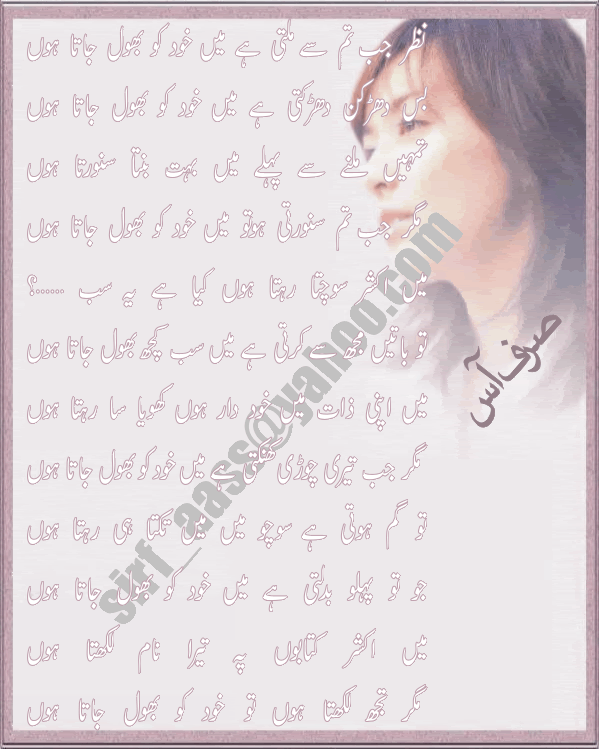 نظر جب تم سے ملتی ہے میں خود کو بھول جاتا ہوں
بس دھڑکن دھڑکتی ہے میں خود کو بھول جاتا ہوں
تمہیں ملنے سے پہلے میں بہت بنتا سنورتا ہوں
مگر جب تم سنورتی ہوتو میں خود کو بھول جاتا ہوں
میں اکثر سوچتا رہتا ہوں کیا ہے یہ سب ......؟
تو باتیں مجھ سے کرتی ہے میں سب کچھ بھول جاتا ہوں
میں اپنی ذات میں خود دار ہوں کھویا سا رہتا ہوں
مگر جب تیری چوڑی کھنکتی ہے میں خود کو بھول جاتا ہوں
تو گم ہوتی ہے سوچو میں میں تکتا ہی رہتا ہوں
جو تو پہلو بدلتی ہے میں خود کو بھول جاتا ہوں
میں اکثر کتابوں پہ تیرا نام لکھتا ہوں
مگر تجھ لکھتا ہوں تو خود کو بھول جاتا ہوں
صرف آس
sirf_aass@yahoo.com